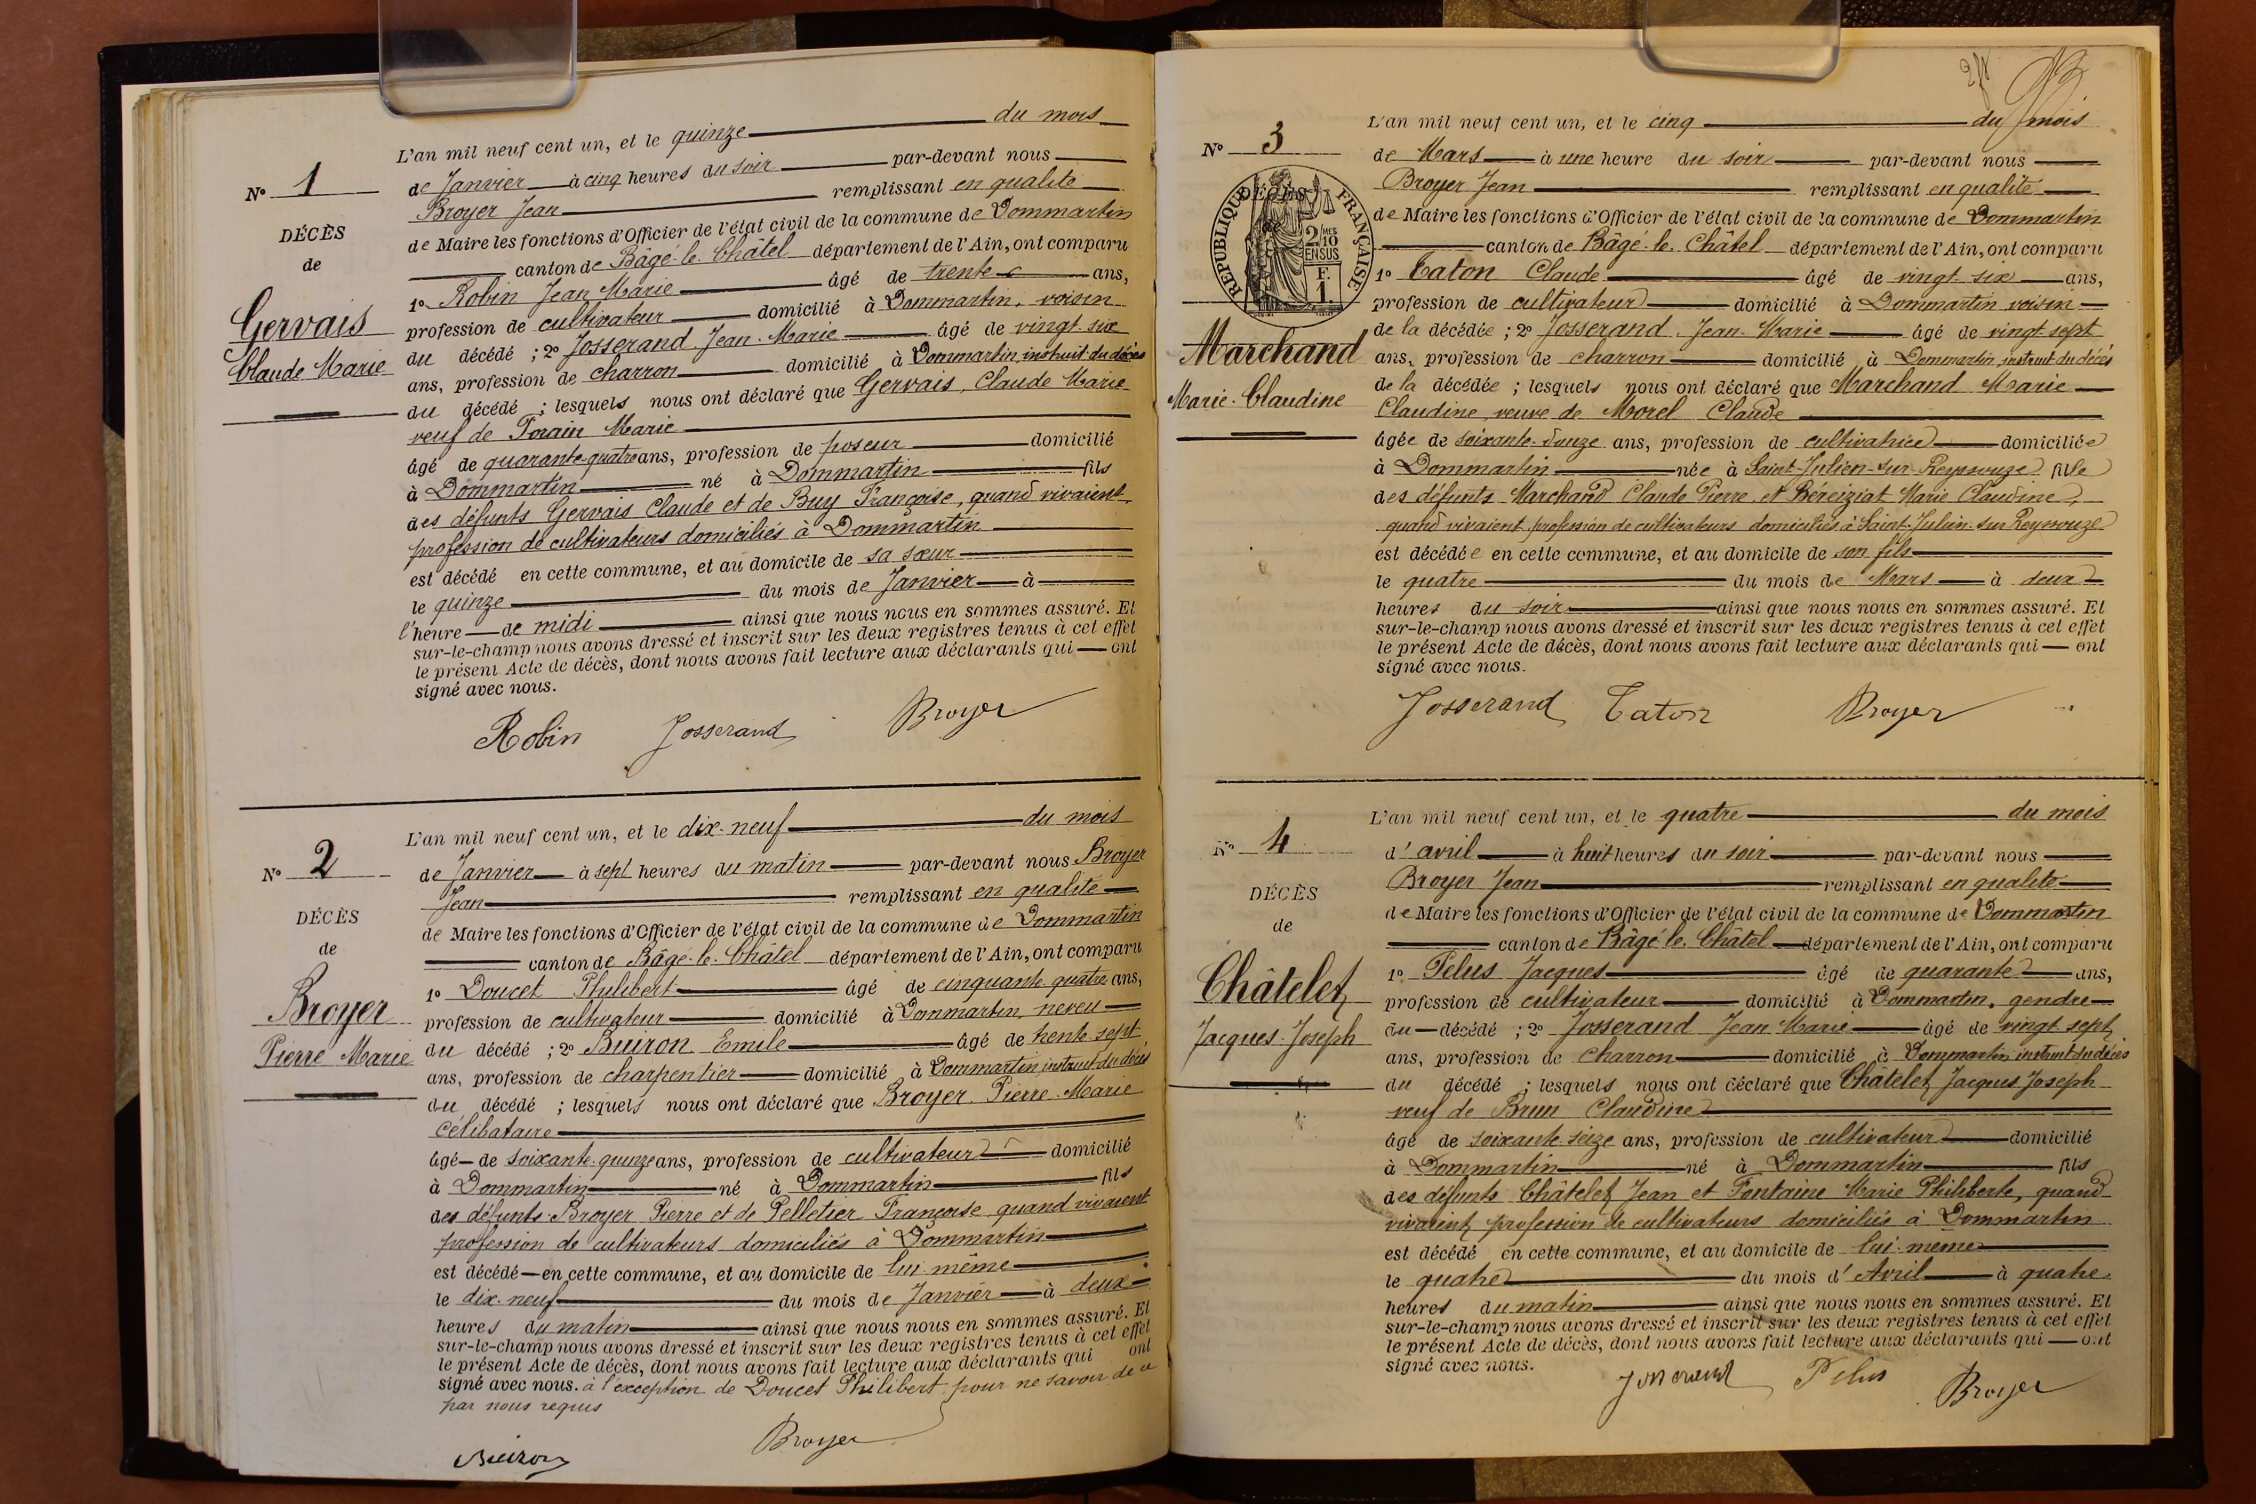 L'an mil neuf cent un, et le quinze du mois
No 1
de Janvier à cinq heures du soir par-devant nous
Broyer Jean remplissant en qualité
DÉCÈS
de Maire les fonctions d'Officier de l'état civil de la commune de Dommartin
de
canton de Bâgé-le-Châtel département de l'Ain, ont comparu
1o Robin Jean Marie âgé de trente ans,
Gervais
profession de cultivateur domicilié à Dommartin, voisin
du décédé ; 2o Josserand Jean-Marie âgé de vingt-six
Claude Marie
ans, profession de charron domicilié à Dommartin, instruit du décès
du décédé ; lesquels nous ont déclaré que Gervais, Claude Marie
veuf de Marie
âgé de quarante-quatre ans, profession de poseur domicilié
à Dommartin né à Dommartin fils
des défunts Gervais Claude et de Buy Françoise, quand vivaient
profession de cultivateurs domiciliés à Dommartin
est décédé en cette commune, et au domicile de sa sœur
le quinze du mois de Janvier à
l'heure de midi ainsi que nous nous en sommes assuré. Et
sur-le-champ nous avons dressé et inscrit sur les deux registres tenus à cet effet
le présent Acte de décès, dont nous avons fait lecture aux déclarants qui ont
signé avec nous.
Robin Josserand Broyer
L'an mil neuf cent un, et le dix-neuf du mois
No 2
de Janvier à sept heures du matin par-devant nous Broyer
Jean remplissant en qualité
DÉCÈS
de Maire les fonctions d'Officier de l'état civil de la commune de Dommartin
de
canton de Bâgé-le-Châtel département de l'Ain, ont comparu
1o Doucet Philibert âgé de cinquante-quatre ans,
Broyer
profession de cultivateur domicilié à Dommartin, neveu
Pierre Marie
du décédé ; 2o Buiron Emile âgé de trente-sept
ans, profession de charpentier domicilié à Dommartin instruit du décès
du décédé ; lesquels nous ont déclaré que Broyer Pierre-Marie
célibataire
âgé de soixante-quinze ans, profession de cultivateur domicilié
à Dommartin né à Dommartin fils
des défunts Broyer Pierre et de Pelletier Françoise quand vivaient
profession de cultivateurs domiciliés à Dommartin
est décédé en cette commune, et au domicile de lui-même
le dix-neuf du mois de Janvier à deux
heures du matin ainsi que nous nous en sommes assuré. Et
sur-le-champ nous avons dressé et inscrit sur les deux registres tenus à cet effet
le présent Acte de décès, dont nous avons fait lecture aux déclarants qui ont
signé avec nous. à l'exception de Doucet Philibert pour ne savoir de ce
par nous requis
Buiron Broyer
L'an mil neuf cent un, et le cinq du mois
No 3
de Mars à une heure du soir par-devant nous
Broyer Jean remplissant en qualité
DÉCÈS
RÉPUBLIQUE FRANÇAISE
2/10 MES EN SUS
F. 1
de Maire les fonctions d'Officier de l'état civil de la commune de Dommartin
canton de Bâgé-le-Châtel département de l'Ain, ont comparu
1o Taton Claude âgé de vingt-six ans,
profession de cultivateur domicilié à Dommartin voisin
de la décédée ; 2o Josserand Jean-Marie âgé de vingt-sept
Marchand
ans, profession de charron domicilié à Dommartin, instruit du décès
de la décédée ; lesquels nous ont déclaré que Marchand Marie
Marie-Claudine
Claudine veuve de Morel Claude
âgée de soixante-donze ans, profession de cultivatrice domiciliée
à Dommartin née à Saint-Julien-sur-Reyssouze fille
des défunts Marchand Claude Pierre et Béreiziat Marie Claudine,
quand vivaient profession de cultivateurs domiciliés à Saint-Julien-sur-Reyssouze
est décédée en cette commune, et au domicile de son fils
le quatre du mois de Mars à deux
heures du soir ainsi que nous nous en sommes assuré. Et
sur-le-champ nous avons dressé et inscrit sur les deux registres tenus à cet effet
le présent Acte de décès, dont nous avons fait lecture aux déclarants qui ont
signé avec nous.
Josserand Taton Broyer
L'an mil neuf cent un, et le quatre du mois
No 4
d'avril à huit heures du soir par-devant nous
Broyer Jean remplissant en qualité
DÉCÈS
de Maire les fonctions d'Officier de l'état civil de la commune de Dommartin
de
canton de Bâgé-le-Châtel département de l'Ain, ont comparu
1o Pelus Jacques âgé de quarante ans,
Châtelet
profession de cultivateur domicilié à Dommartin, gendre
du décédé ; 2o Josserand Jean Marie âgé de vingt-sept
Jacques-Joseph
ans, profession de charron domicilié à Dommartin instruit du décès
du décédé ; lesquels nous ont déclaré que Châtelet Jacques Joseph
veuf de Brun Claudine
âgé de soixante-seize ans, profession de cultivateur domicilié
à Dommartin né à Dommartin fils
des défunts Châtelet Jean et Fontaine Marie Philiberte, quand
vivaient profession de cultivateurs domiciliés à Dommartin
est décédé en cette commune, et au domicile de lui-même
le quatre du mois d'Avril à quatre
heures du matin ainsi que nous nous en sommes assuré. Et
sur-le-champ nous avons dressé et inscrit sur les deux registres tenus à cet effet
le présent Acte de décès, dont nous avons fait lecture aux déclarants qui ont
signé avec nous.
Josserand Pelus Broyer